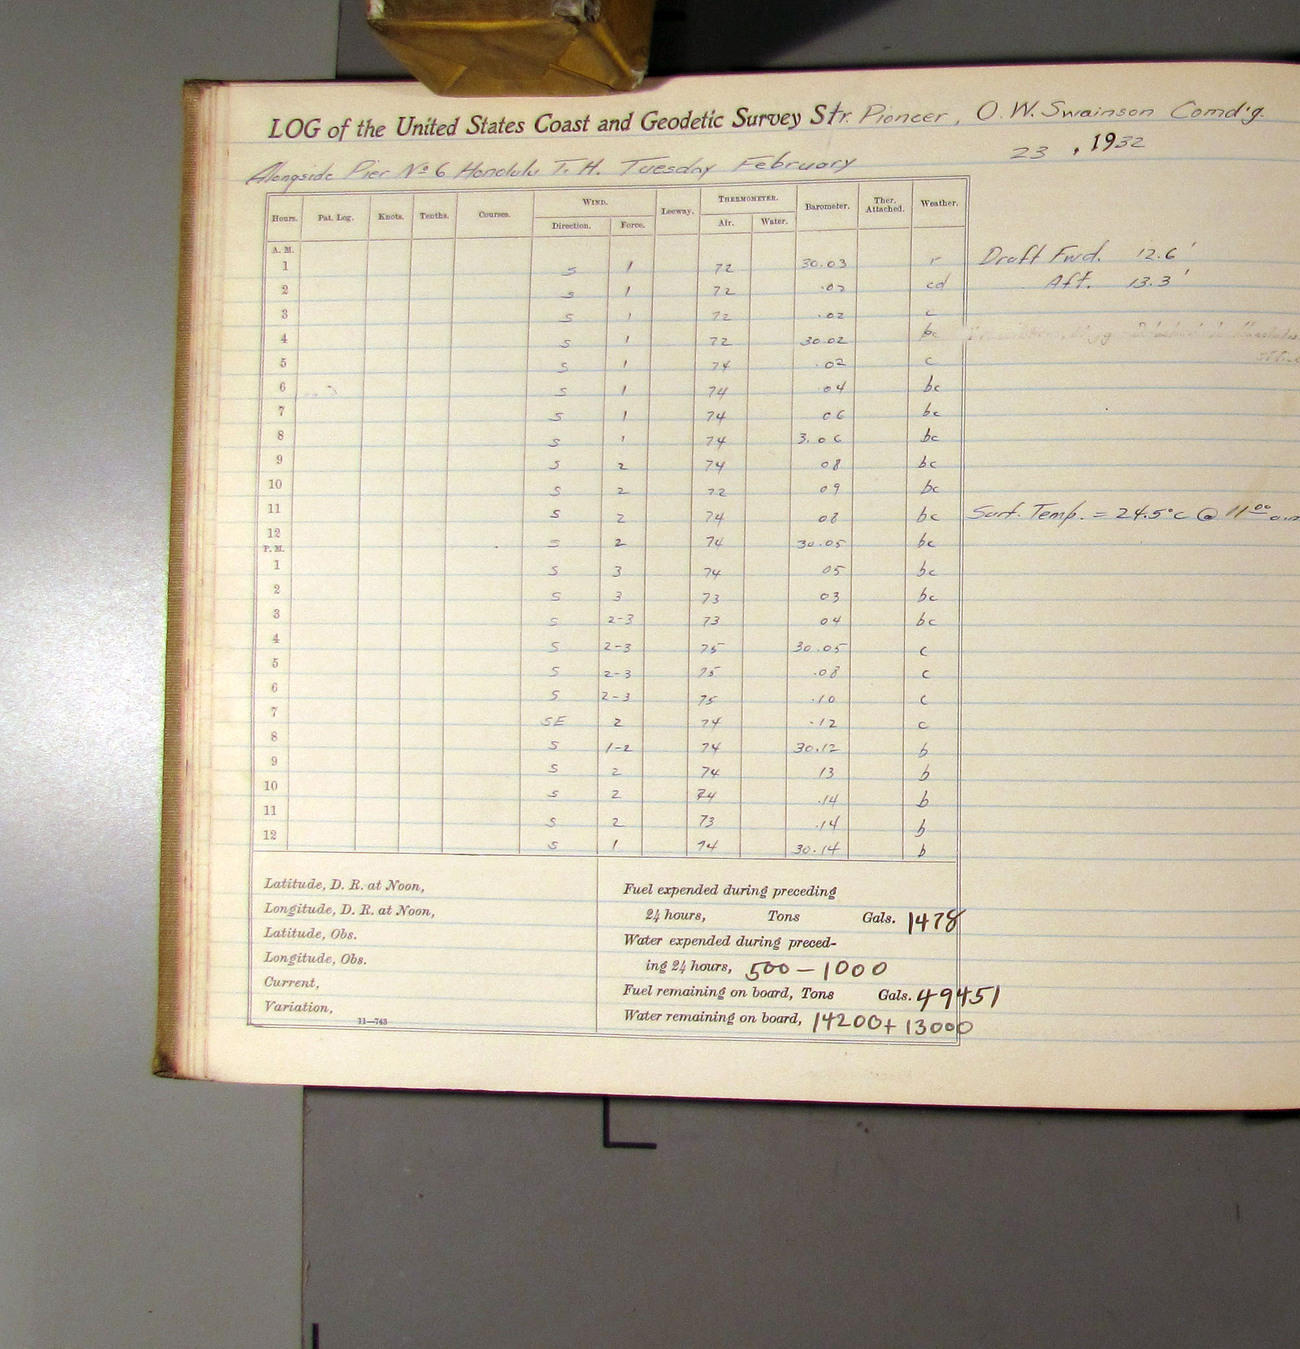 LOG of the United States Coast and Geodetic Survey Str. Pioneer, O. W. Swainson Comd'g.
Alongside Pier No 6 Honolulu T. H. Tuesday February 23, 1932
Hours. Pat. Log. Knots. Tenths. Courses. WIND. Leeway. THERMOMETER. Barometer. Ther. Attached. Weather.
Direction. Force. Air. Water.
A. M.
1 S 1 72 30.03 r Draft Fwd. 12.6'
2 S 1 72 cd Aft. 13.3'
3 S 1 72 .02 c
4 S 1 72 30.02 bc
5 S 1 74 .02 c
6 S 1 74 .04 bc
7 S 1 74 06 bc
8 S 1 74 3.06 bc
9 S 2 74 08 bc
10 S 2 72 09 bc
11 S 2 74 08 bc Surf. Temp. = 24.5°C @ 11 00 a.m
12 S 2 74 30.05 bc
P. M.
1 S 3 74 05 bc
2 S 3 73 03 bc
3 S 2-3 73 04 bc
4 S 2-3 75 30.05 c
5 S 2-3 75 .08 c
6 S 2-3 75 .10 c
7 SE 2 74 .12 c
8 S 1-2 74 30.12 b
9 S 2 74 13 b
10 S 2 74 .14 b
11 S 2 73 .14 b
12 S 1 74 30.14 b
Latitude, D. R. at Noon,
Longitude, D. R. at Noon,
Latitude, Obs.
Longitude, Obs.
Current,
Variation,
11—743
Fuel expended during preceding
24 hours, Tons Gals. 1478
Water expended during preced-
ing 24 hours, 500 – 1000
Fuel remaining on board, Tons Gals. 49451
Water remaining on board, 14200 + 13000